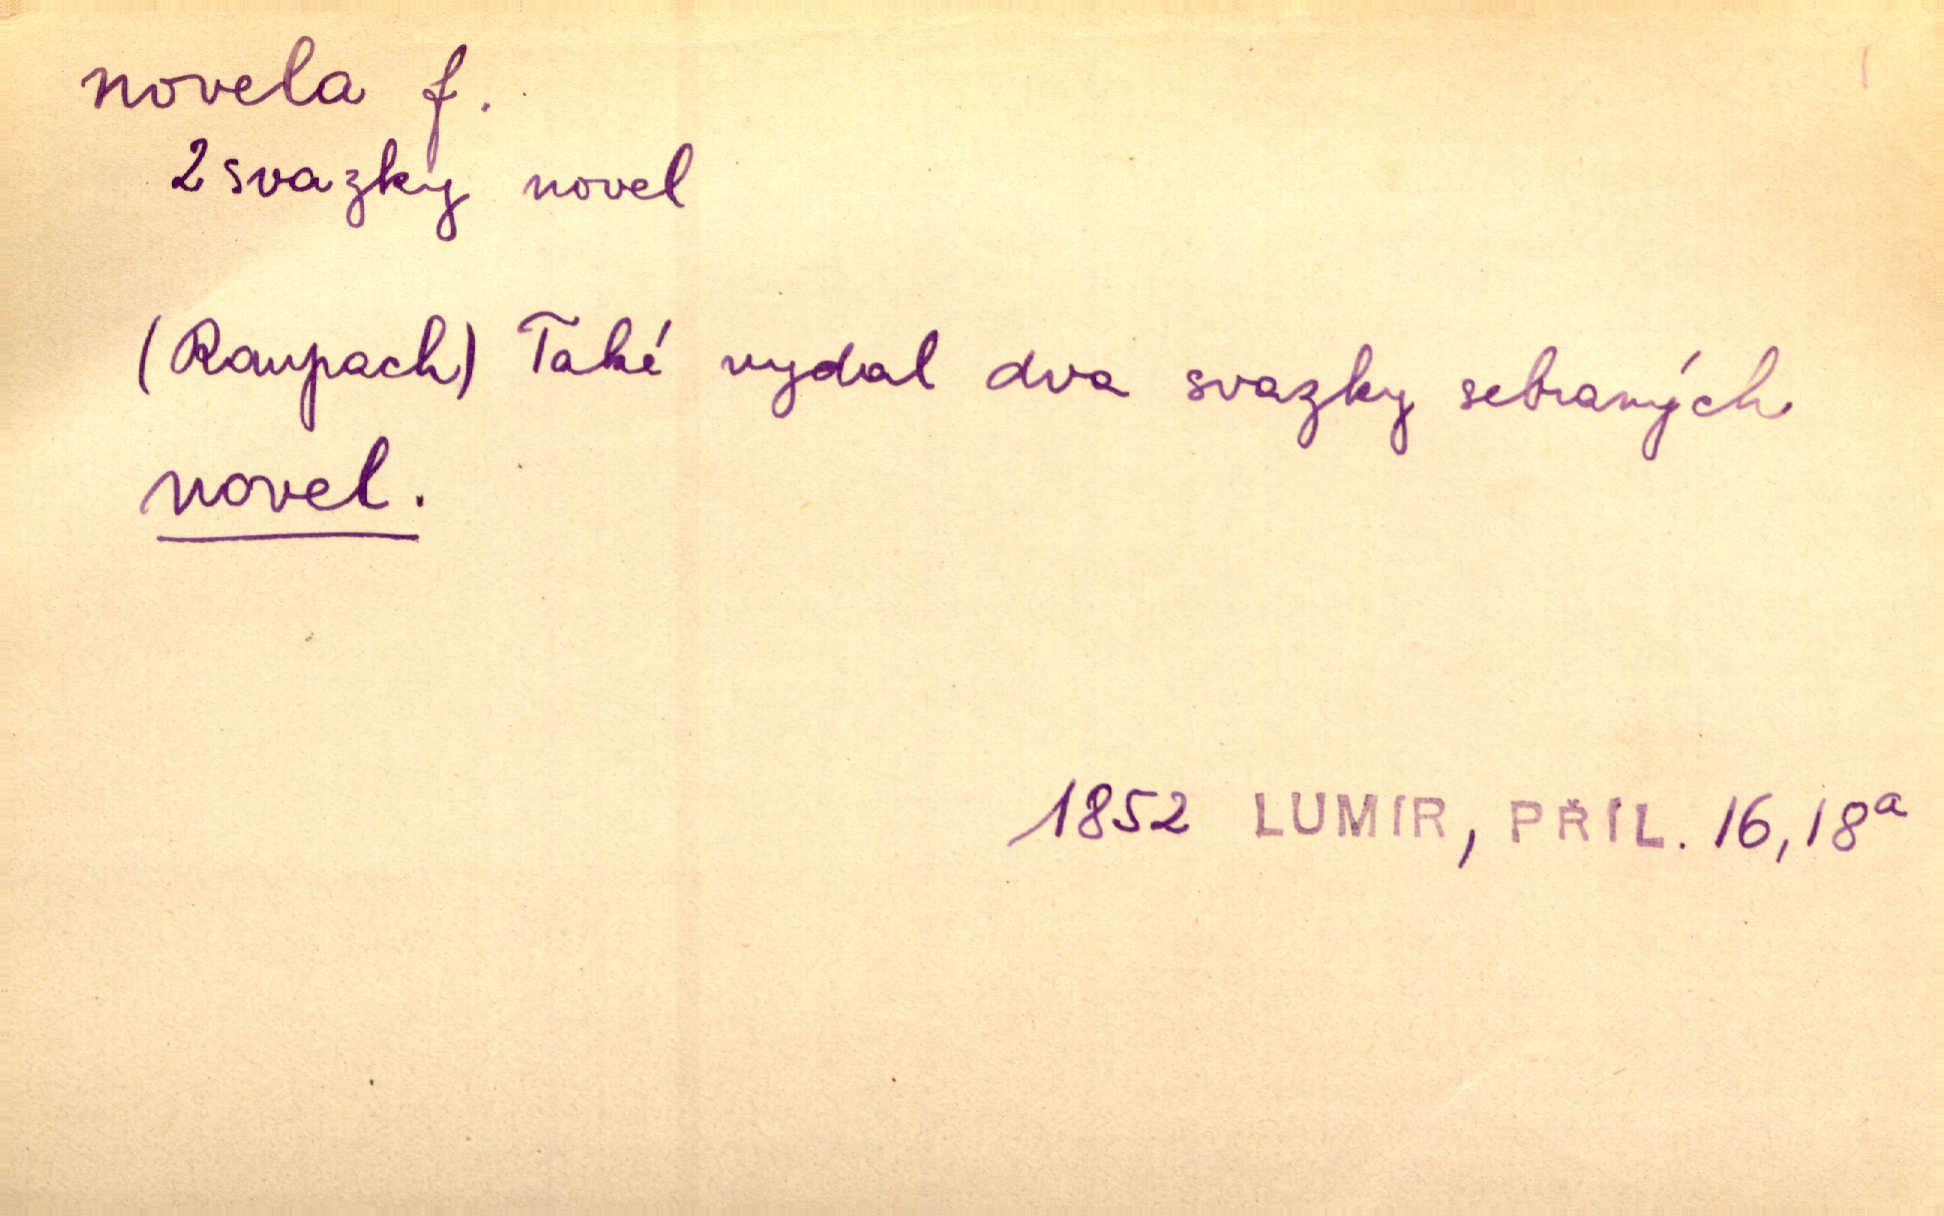 novela f.
2 svazky novel
(Raupach) Také vydal dva svazky sebraných
novel.
1852 LUMÍR, PŘÍL. 16, 18a